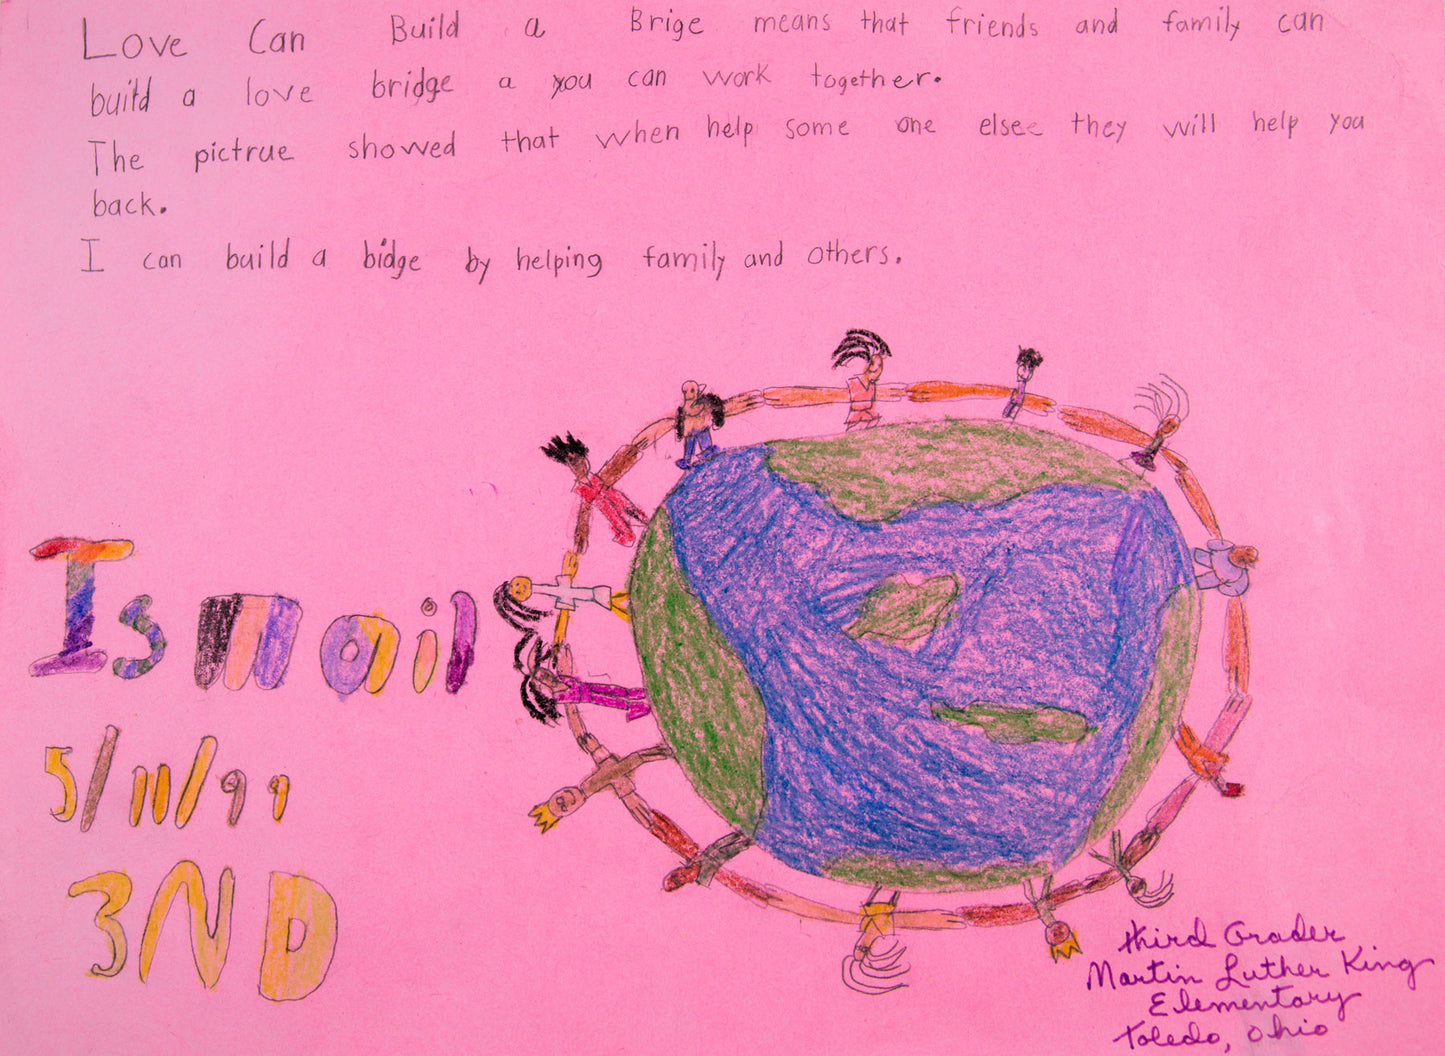 Love Can Build a Brige means that friends and family can
build a love bridge a you can work together.
The pictrue showed that when help some one else they will help you
back.
I can build a bidge by helping family and others.
Ismail
5/11/99
3ND
third Grader
Martin Luther King
Elementary
Toledo, Ohio